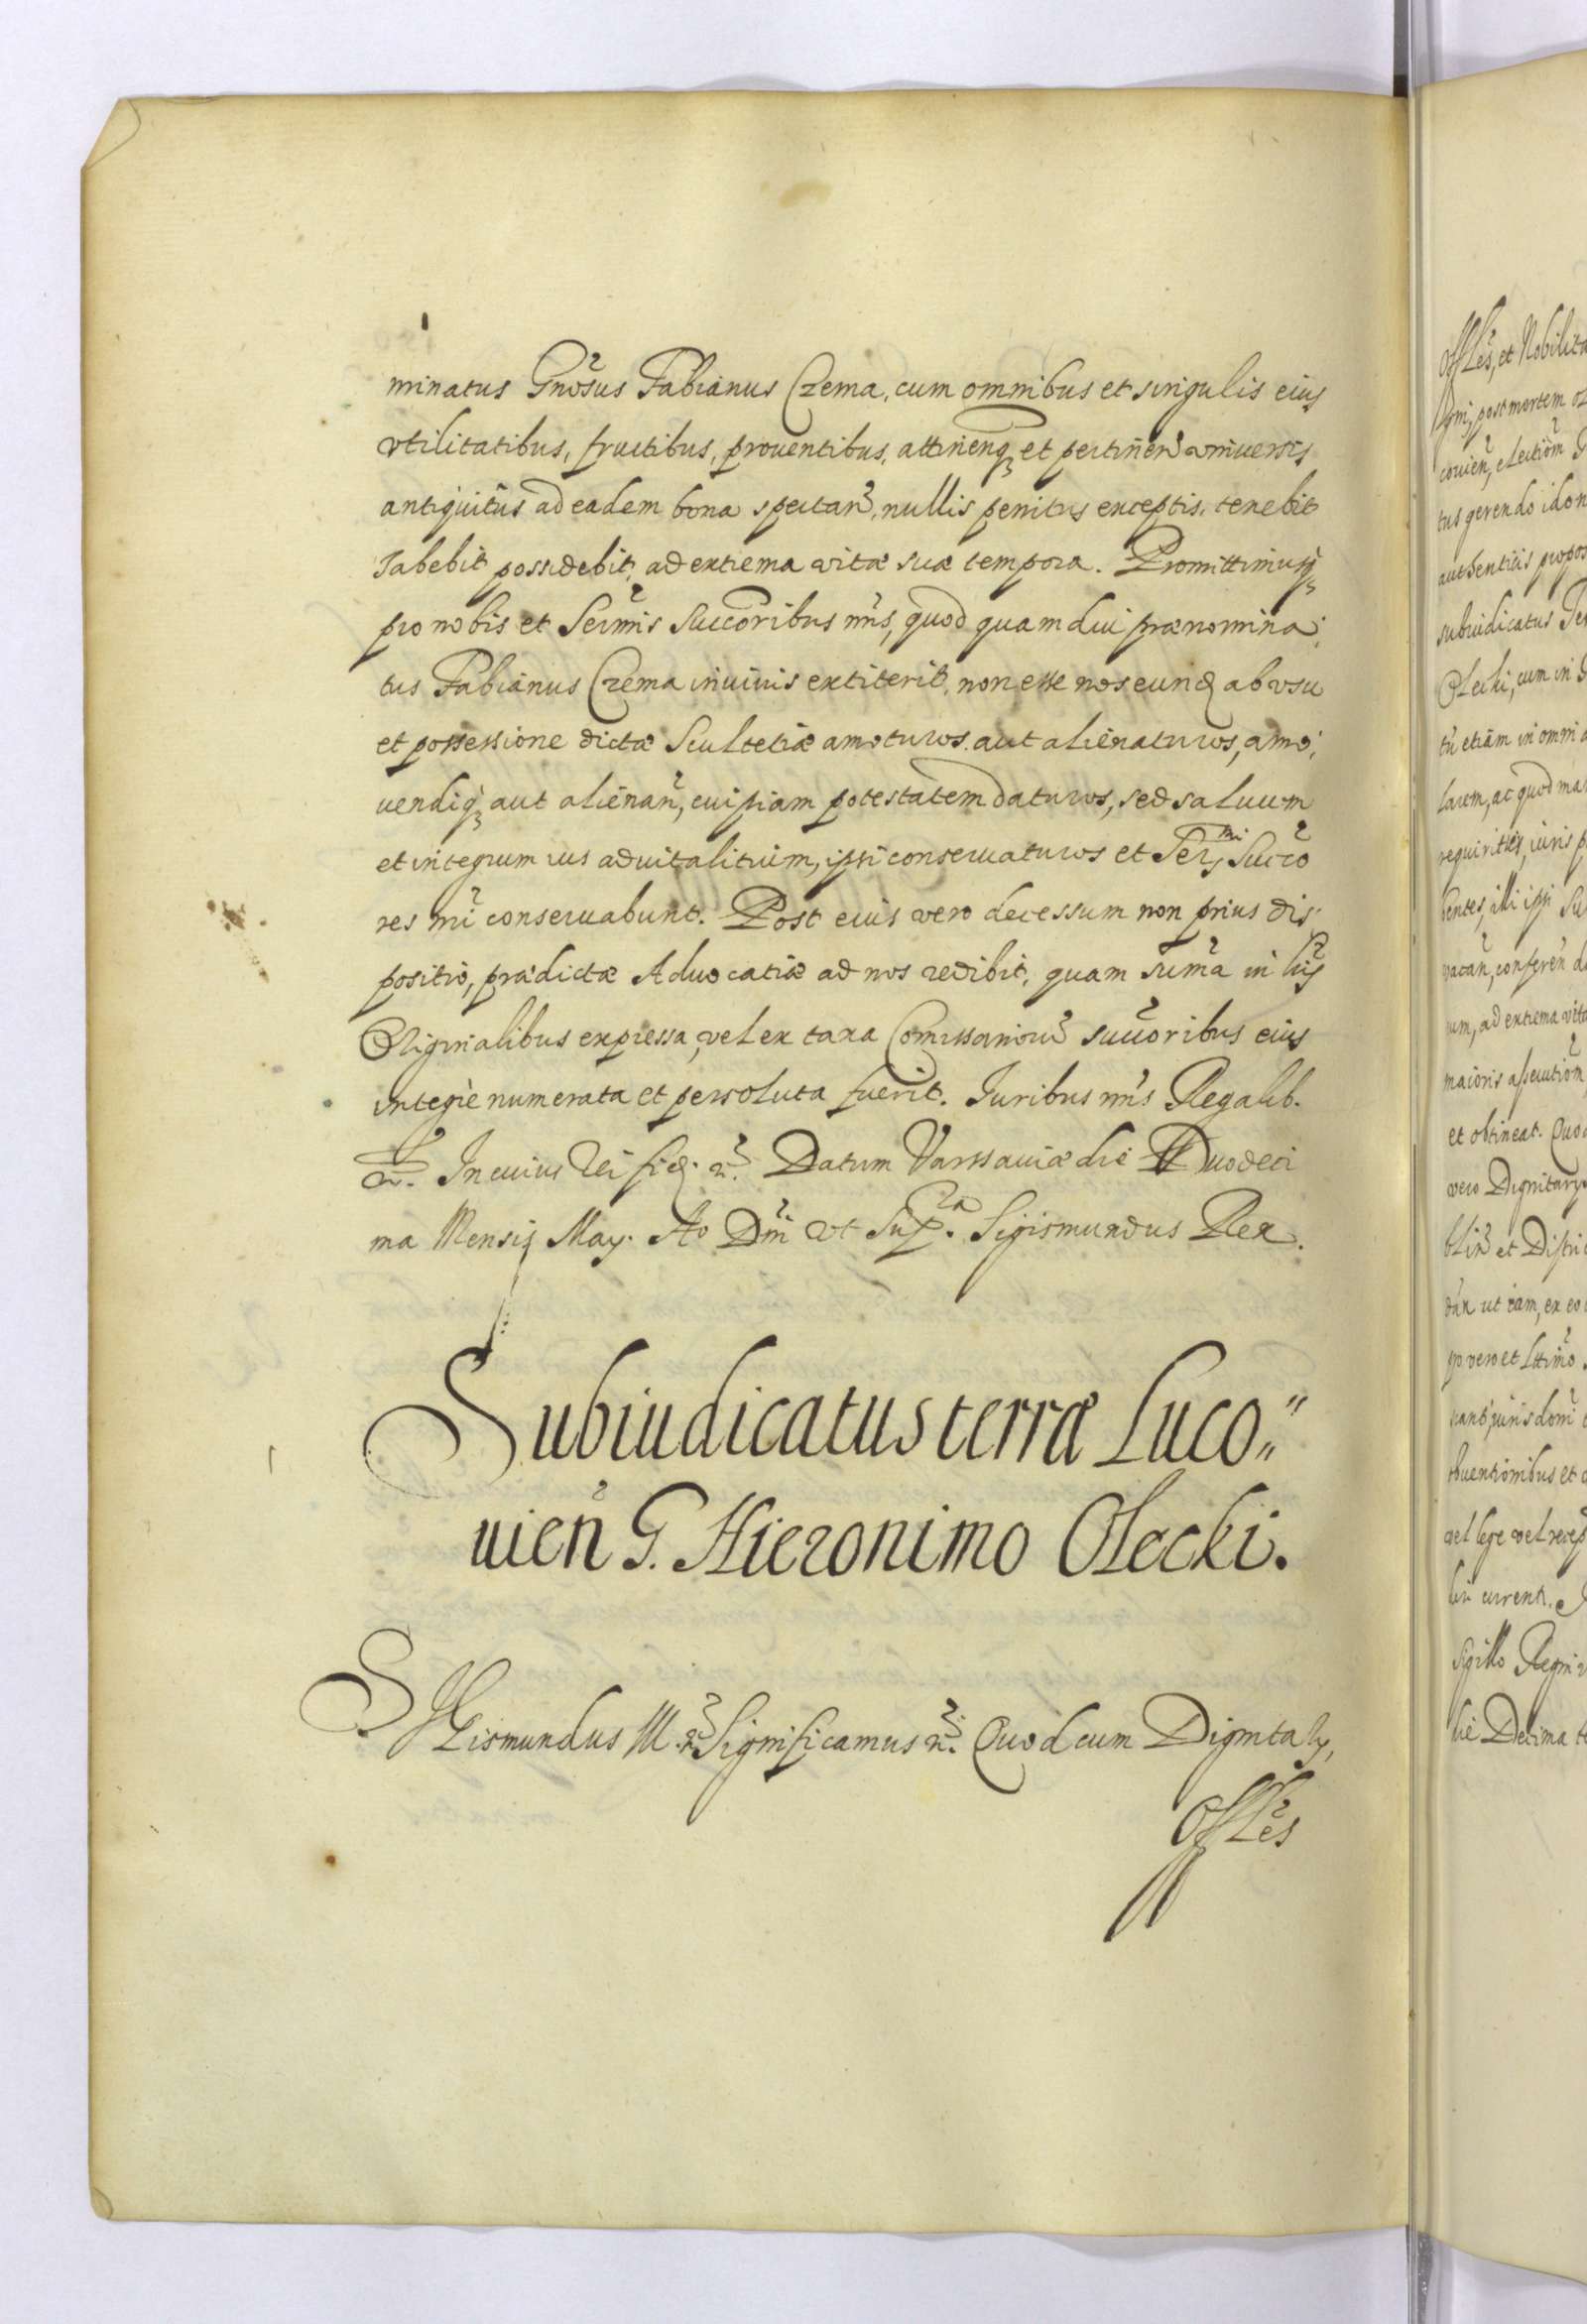 minatus Gnõsus Fabianus Czema, cum omnibus et singulis eius
vtilitatibus, fructibus, prouentibus, attinenq₃ et pertineñ vniuersis
antiquitùs ad eadem bona spectañ, nullis penitus exceptis, tenebit
habebit possidebit, ad extrema vitæ suæ tempora. Promittimusq₃
pro nobis et Serm̃is Succoribus nr̃is, quod quam diu prænomina:
tus Fabianus Czema in viuis extiterit, non esse nos eund ab vsu
et possessione dictæ Scultetiæ amoturos aut alienaturos, amo:
uendiq₃ aut alienañ, cuipiam potestatem daturos, sed saluum
et integrum ius aduitalitium, ipsi conseruaturos et Sermi Succo
res nr̃i conseruabunt. Post eius vero decessum non prius dis:
positio, prædictæ Aduocatiæ ad nos redibit, quam Sum̃a in his
Originalibus expressa, vel ex taxa Comissarioru᷉ succoribus eius
integrè numerata et persoluta fuerit. Iuribus nr̃is Regalib.
In cuius rei fid. Datum Varssauiæ die Duodeci
ma Mensis May. Ao Dñi vt Supra. Sigismundus Rex.
Subiudicatus terræ Luco"
uieñ G. Hieronimo Olecki.
SIGismundus III. Significamus Quod cum Dignitarÿ,
Offles
Offles, et Nobilita
gni, post mortem
couieñ, electiom̃
tus gerendo idon
authenticis propos
subiudicatus Ter
Olecki, cum in
tũ etiam in omni
larem, ac quod ma
requirities, iuris p
bentes, illi ipsi Su
vacañ, conferen d
um, ad extrema vita
maioris assecution
et obtineat. Quod
vero Dignitarys
bliñ et Distri
dañ ut eam, ex eo
go vero et Lttimo
uant iuris domi
buentionibus et
vel lege vel recep
ter current.
Sigillo Regni
die Decima te